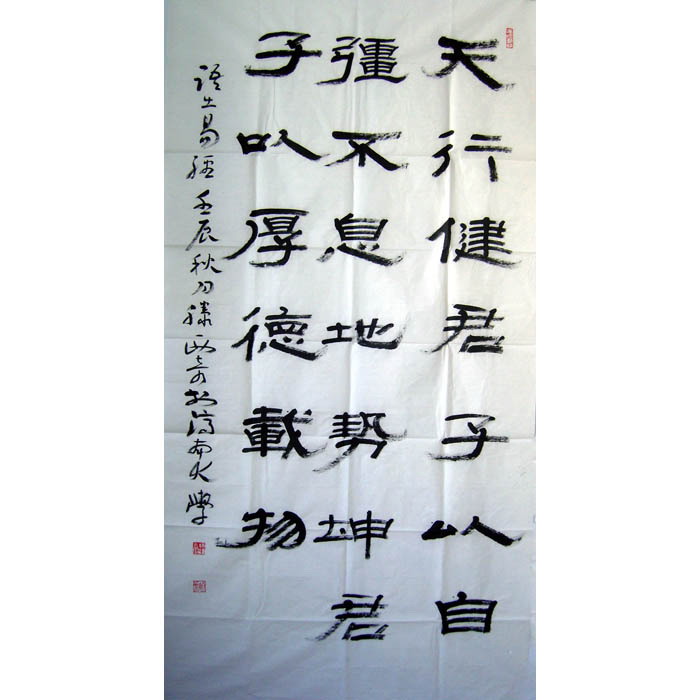 天行健君子以自
彊不息地势坤君
子以厚德載物
語出易經壬辰秋月滕西奇於濟南大學